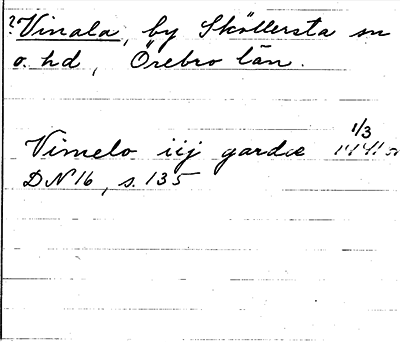 ? Vinala, by Sköllersta sn
o. hd, Örebro län.
Vimelo iij gardæ 1/3 1441
DN 16, s. 135